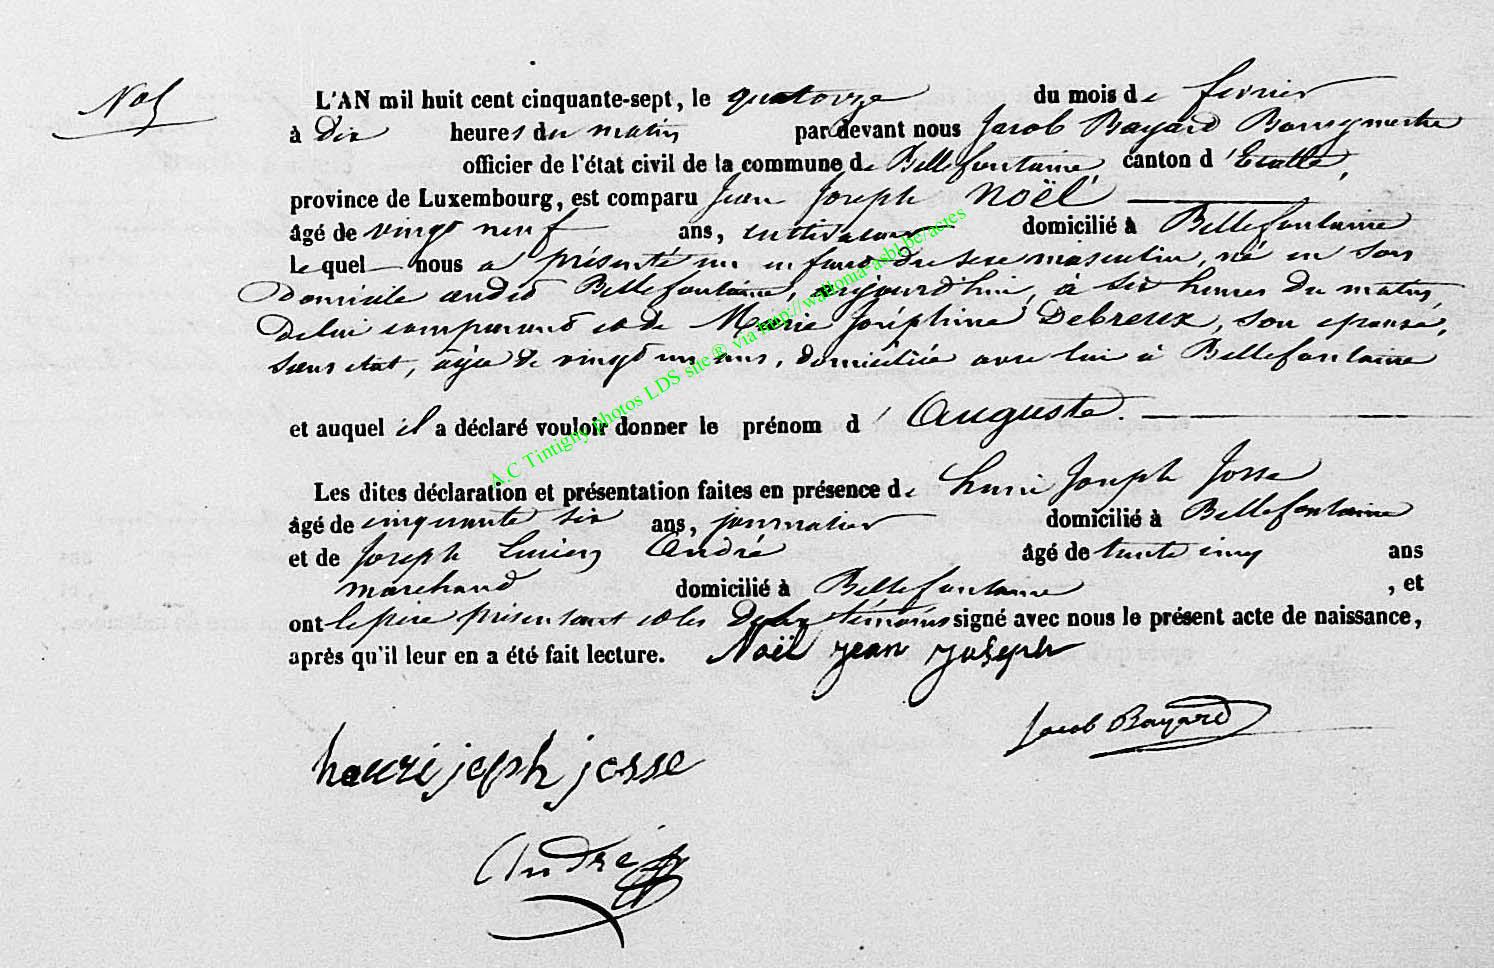 Noël
L'AN mil huit cent cinquante-sept, le quatorze du mois de fevrier
à dix heures du matin par devant nous Jacob Bayard Bourgmestre
officier de l'état civil de la commune de Bellefontaine, canton d'Etalle,
province de Luxembourg, est comparu Jean Joseph Noël
âgé de vingt neuf ans, cultivateur domicilié à Bellefontaine
le quel nous a présenté un enfant du sexe masculin, né en son
domicile audit Bellefontaine, aujourd'hui, à six heures du matin,
de lui comparant et de Marie Joséphine Debreux, son epouse,
sans etat, agée de vingt un ans, domiciliée avec lui à Bellefontaine
et auquel il a déclaré vouloir donner le prénom d'Auguste.
Les dites déclaration et présentation faites en présence de Henri Joseph Josse
âgé de cinquante six ans, journalier domicilié à Bellefontaine
et de Joseph Lucien André âgé de trente cinq ans
marchand domicilié à Bellefontaine, et
ont le père présentant et les deux témoins signé avec nous le présent acte de naissance,
après qu'il leur en a été fait lecture. Noël jean joseph
Jacob Bayard
henri jeph josse
André
A.C Tintigny photos LDS site ® via http://walloma-asbl.be/actes